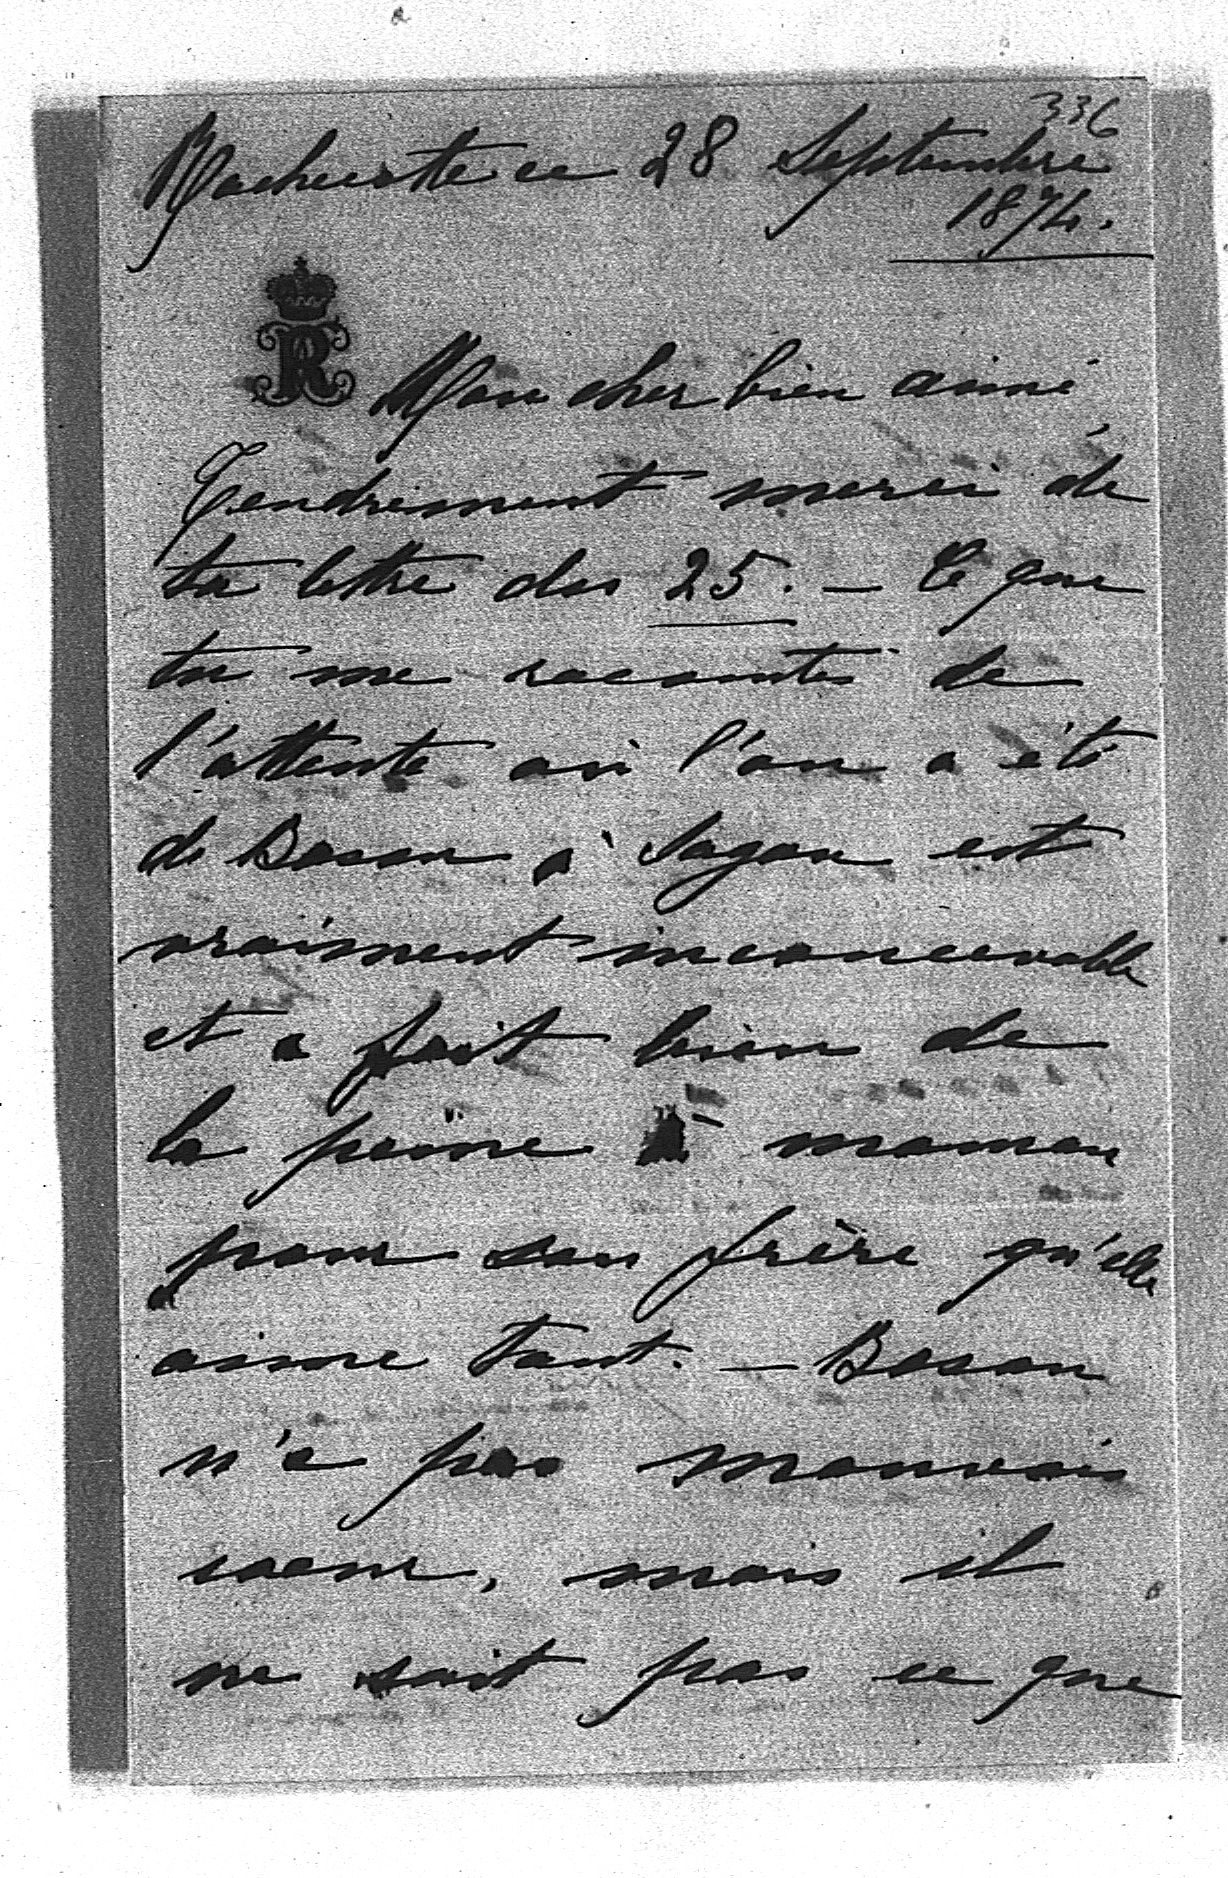 336
Rochecotte ce 28 Septembre
1874.
R
Mon cher bien aimé,
Tendrement merci de
ta lettre du 25. — Ce que
tu me racontes de
l'attente où l'on a été
de Boson à Sagan est
vraiment inconcevable
et a fait bien de
la peine à maman
pour son frère qu'elle
aime tant. — Boson
n'a pas mauvais
coeur, mais il
ne sait pas ce que